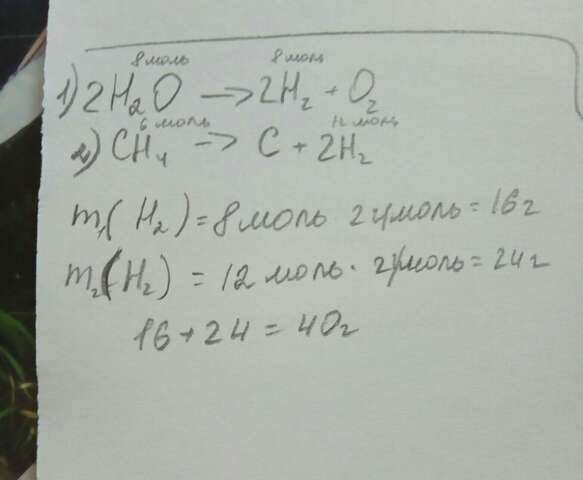 8 моль 8 моль
1) 2H₂O → 2H₂ + O₂
6 моль 12 моль
2) CH₄ → C + 2H₂
m₁(H₂) = 8 моль 2 г/моль = 16 г
m₂(H₂) = 12 моль · 2 г/моль = 24 г
16 + 24 = 40 г